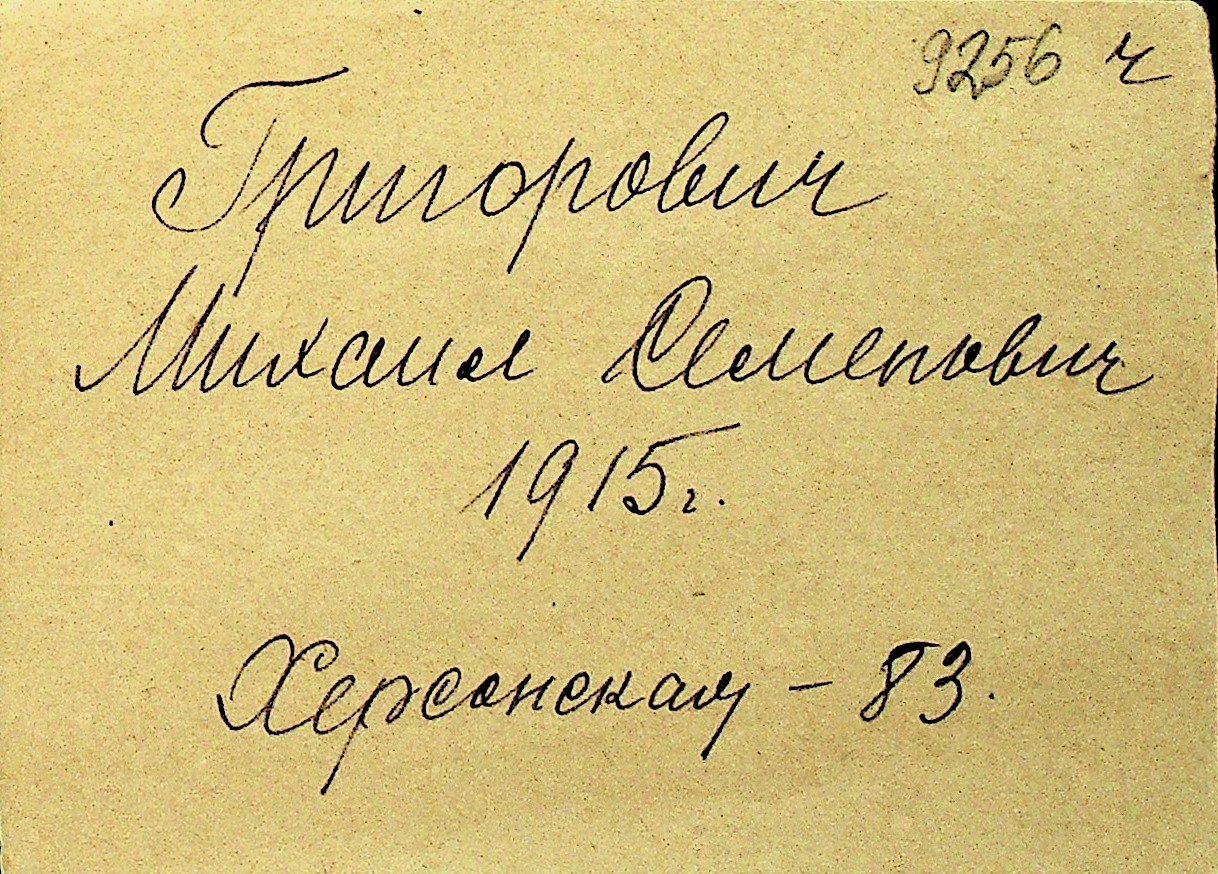 9256 ч
Григорович
Михаил Семенович
1915г.
Херсонская – 83.